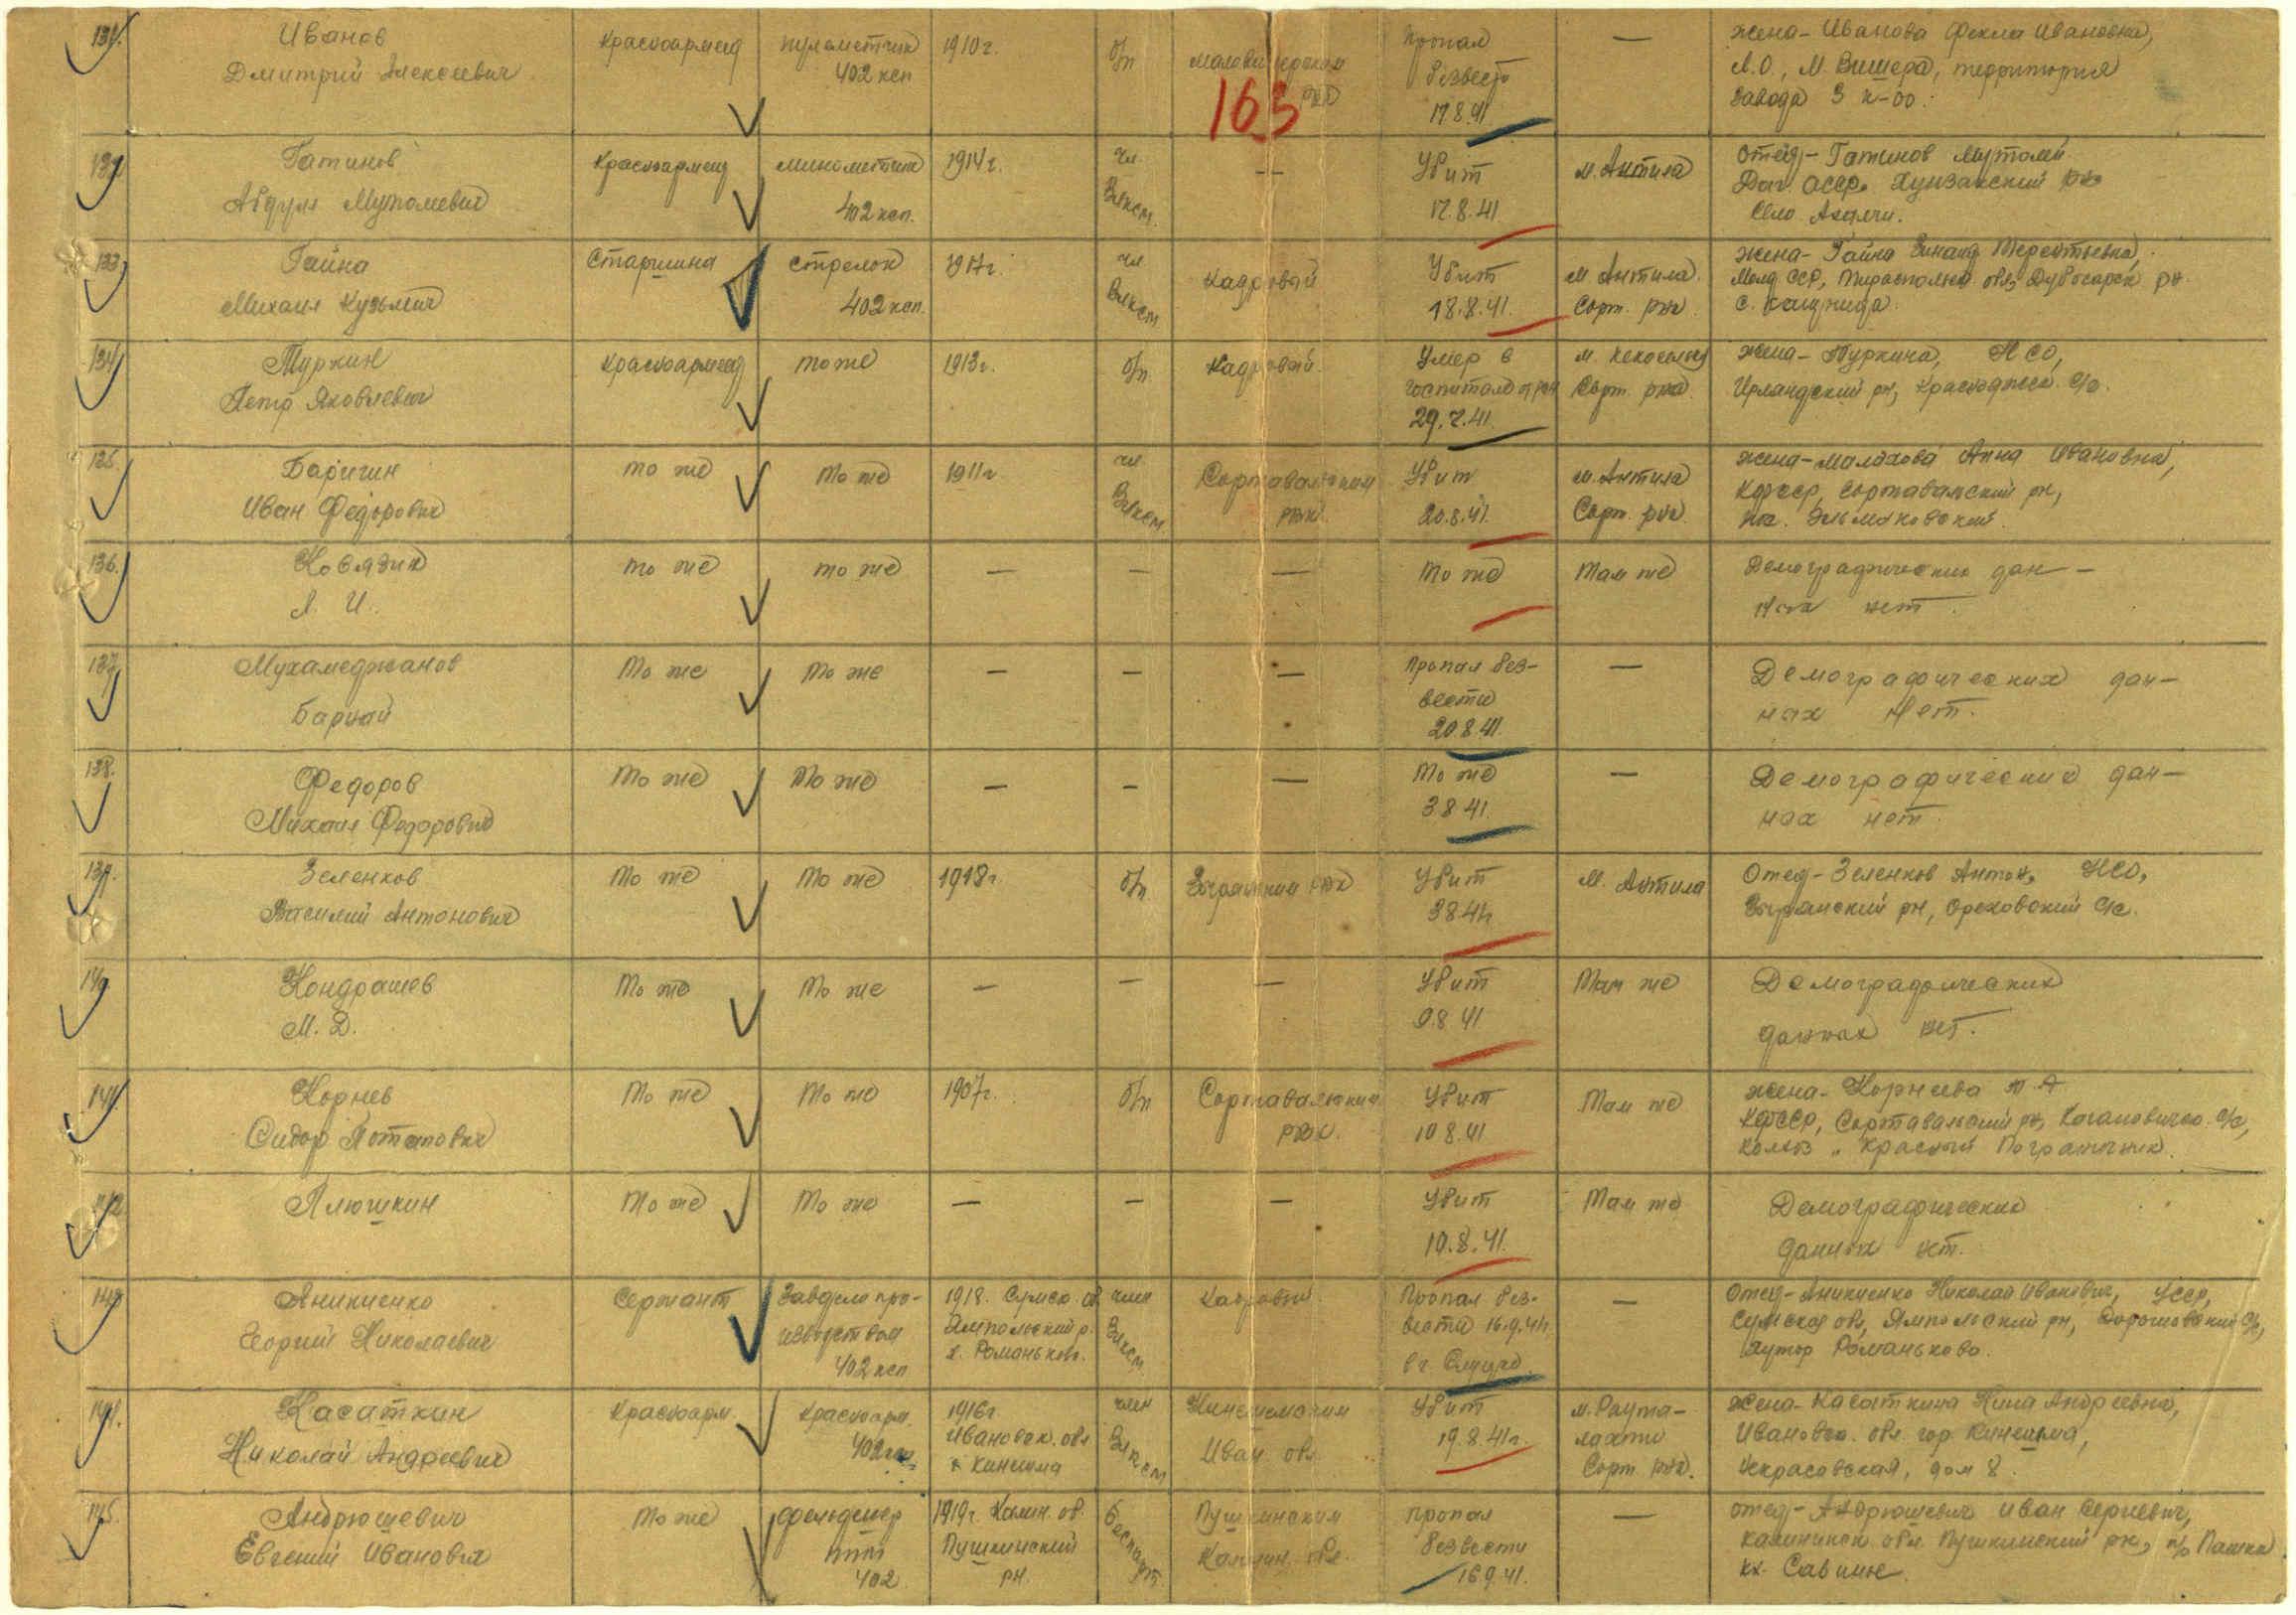 131.
Иванов
Дмитрий Алексеевич
Красноармеец
пулеметчик
402 ксп
1910 г.
б/п
Маловишерским
РВК
163
Пропал
безвести
17.8.41
—
жена - Иванова Фекла Ивановна,
Л.О., М. Вишера, территория
завода 3 к-00.
132
Гатинов
Абдул Мутолиевич
Красноармеец
минометчик
402 ксп.
1914 г.
чл.
ВЛКСМ.
—
Убит
17.8.41.
м. Антила
Отец - Гатинов Мутолий
Даг. АССР. Хунзакский рн
село Ахалчи.
133
Гайна
Михаил Кузьмич
Старшина
стрелок
402 ксп.
1917 г.
чл
ВЛКСМ
Кадровый
Убит
18.8.41.
м. Антила
Сорт. рна
жена - Гайна Зинаид. Терентьевна,
Молд ССР, Тираспольск. обл, Дубосарск рн
с.
134
Туркин
Петр Яковлевич
Красноармеец
то же
1913 г.
б/п
Кадровый.
Умер в
госпитале от ран
29.7.41
м.
Сорт. рна
жена - Туркина, НСО,
рн, с/с.
135.
Баригин
Иван Федорович
то же
то же
1911 г
чл
ВЛКСМ.
Сортавальским
РВК.
Убит
20.8.41.
м. Антила
Сорт. рна
жена - Малахова Анна Ивановна,
КФССР, Сортавальский рн,
136.
Ковязин
Л. И.
то же
то же
—
—
—
То же
Там же
Демографических дан-
ных нет.
137
Мухамеджанов
Барнай
То же
То же
—
—
—
Пропал без-
вести
20.8.41.
—
Демографических дан-
ных нет.
138.
Федоров
Михаил Федорович
То же
То же
—
—
—
То же
3 8 41.
—
Демографических дан-
ных нет.
139.
Зеленков
Василий Антонович
То же
То же
1918 г.
б/п
РВК
Убит
3 8 41
м. Антила
Отец - Зеленков Антон, НСО,
рн, Ореховский с/с.
140.
Кондрашев
М. Д.
То же
То же
—
—
—
Убит
9.8 41
Там же
Демографических
данных нет.
141.
Корнев
Сидор Потапович
То же
То же
1907 г.
б/п
Сортавальским
РВК.
Убит
10 8.41
Там же
жена - Корнеева
КФССР, Сортавальский рн, Кагановичск. с/с,
колхоз „Красный Пограничник.
142
Плюшкин
То же
То же
—
—
—
Убит
10.8.41.
Там же
Демографических
данных нет.
143
Аникиенко
Георгий Николаевич
Сержант
Завделопро-
изводством
402 ксп
1918. Сумск. об
Ямпольский р.
х. Романьково.
член
ВЛКСМ
Кадровый
Пропал без-
вести 16.9.41
в г. Слуцке.
—
Отец - Аникиенко Николай Иванович, УССР,
Сумская обл, Ямпольский рн, Дорошовский с/с,
хутор Романьково.
144.
Касаткин
Николай Андреевич
Красноарм.
Красноарм.
402 ксп
1916 г.
Ивановск. обл
г Кинешма
член
ВЛКСМ
Кинешемским
Иван. обл.
Убит
19.8.41 г.
м. Раута-
лахти
Сорт. рна.
жена - Касаткина Нина Андреевна,
Ивановск. обл. гор. Кинешма,
Некрасовская, дом 8.
145.
Андрюшевич
Евгений Иванович
То же
фельдшер
402
1919 г. Калин. об.
Пушкинский
рн.
беспарт.
Пушкинским
Калин. обл.
пропал
безвести
16.9.41.
—
отец - Андрюшевич Иван Сергеевич,
Калининск. обл. Пушкинский рн, п/о